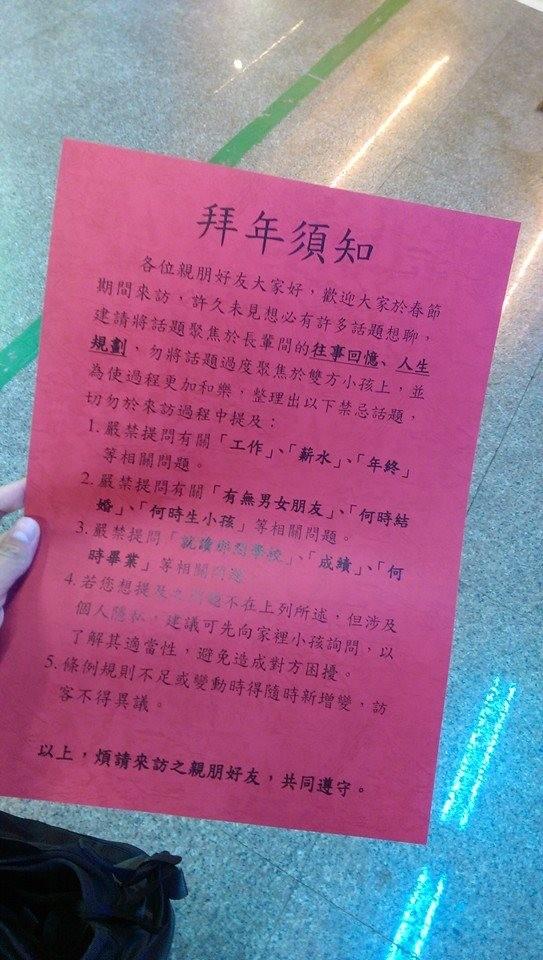 拜年須知
各位親朋好友大家好，歡迎大家於春節
期間來訪，許久未見想必有許多話題想聊，
建請將話題聚焦於長輩間的往事回憶、人生
規劃，勿將話題過度聚焦於雙方小孩上，並
為使過程更加和樂，整理出以下禁忌話題，
切勿於來訪過程中提及：
1. 嚴禁提問有關「工作」、「薪水」、「年終」
等相關問題。
2. 嚴禁提問有關「有無男女朋友」、「何時結
婚」、「何時生小孩」等相關問題。
3. 嚴禁提問「就讀學校」、「成績」、「何
時畢業」等相關問題
4. 若您想提及之問題不在上列所述，但涉及
個人隱私，建議可先向家裡小孩詢問，以
了解其適當性，避免造成對方困擾。
5. 條例規則不足或變動時得隨時新增變，訪
客不得異議。
以上，煩請來訪之親朋好友，共同遵守。